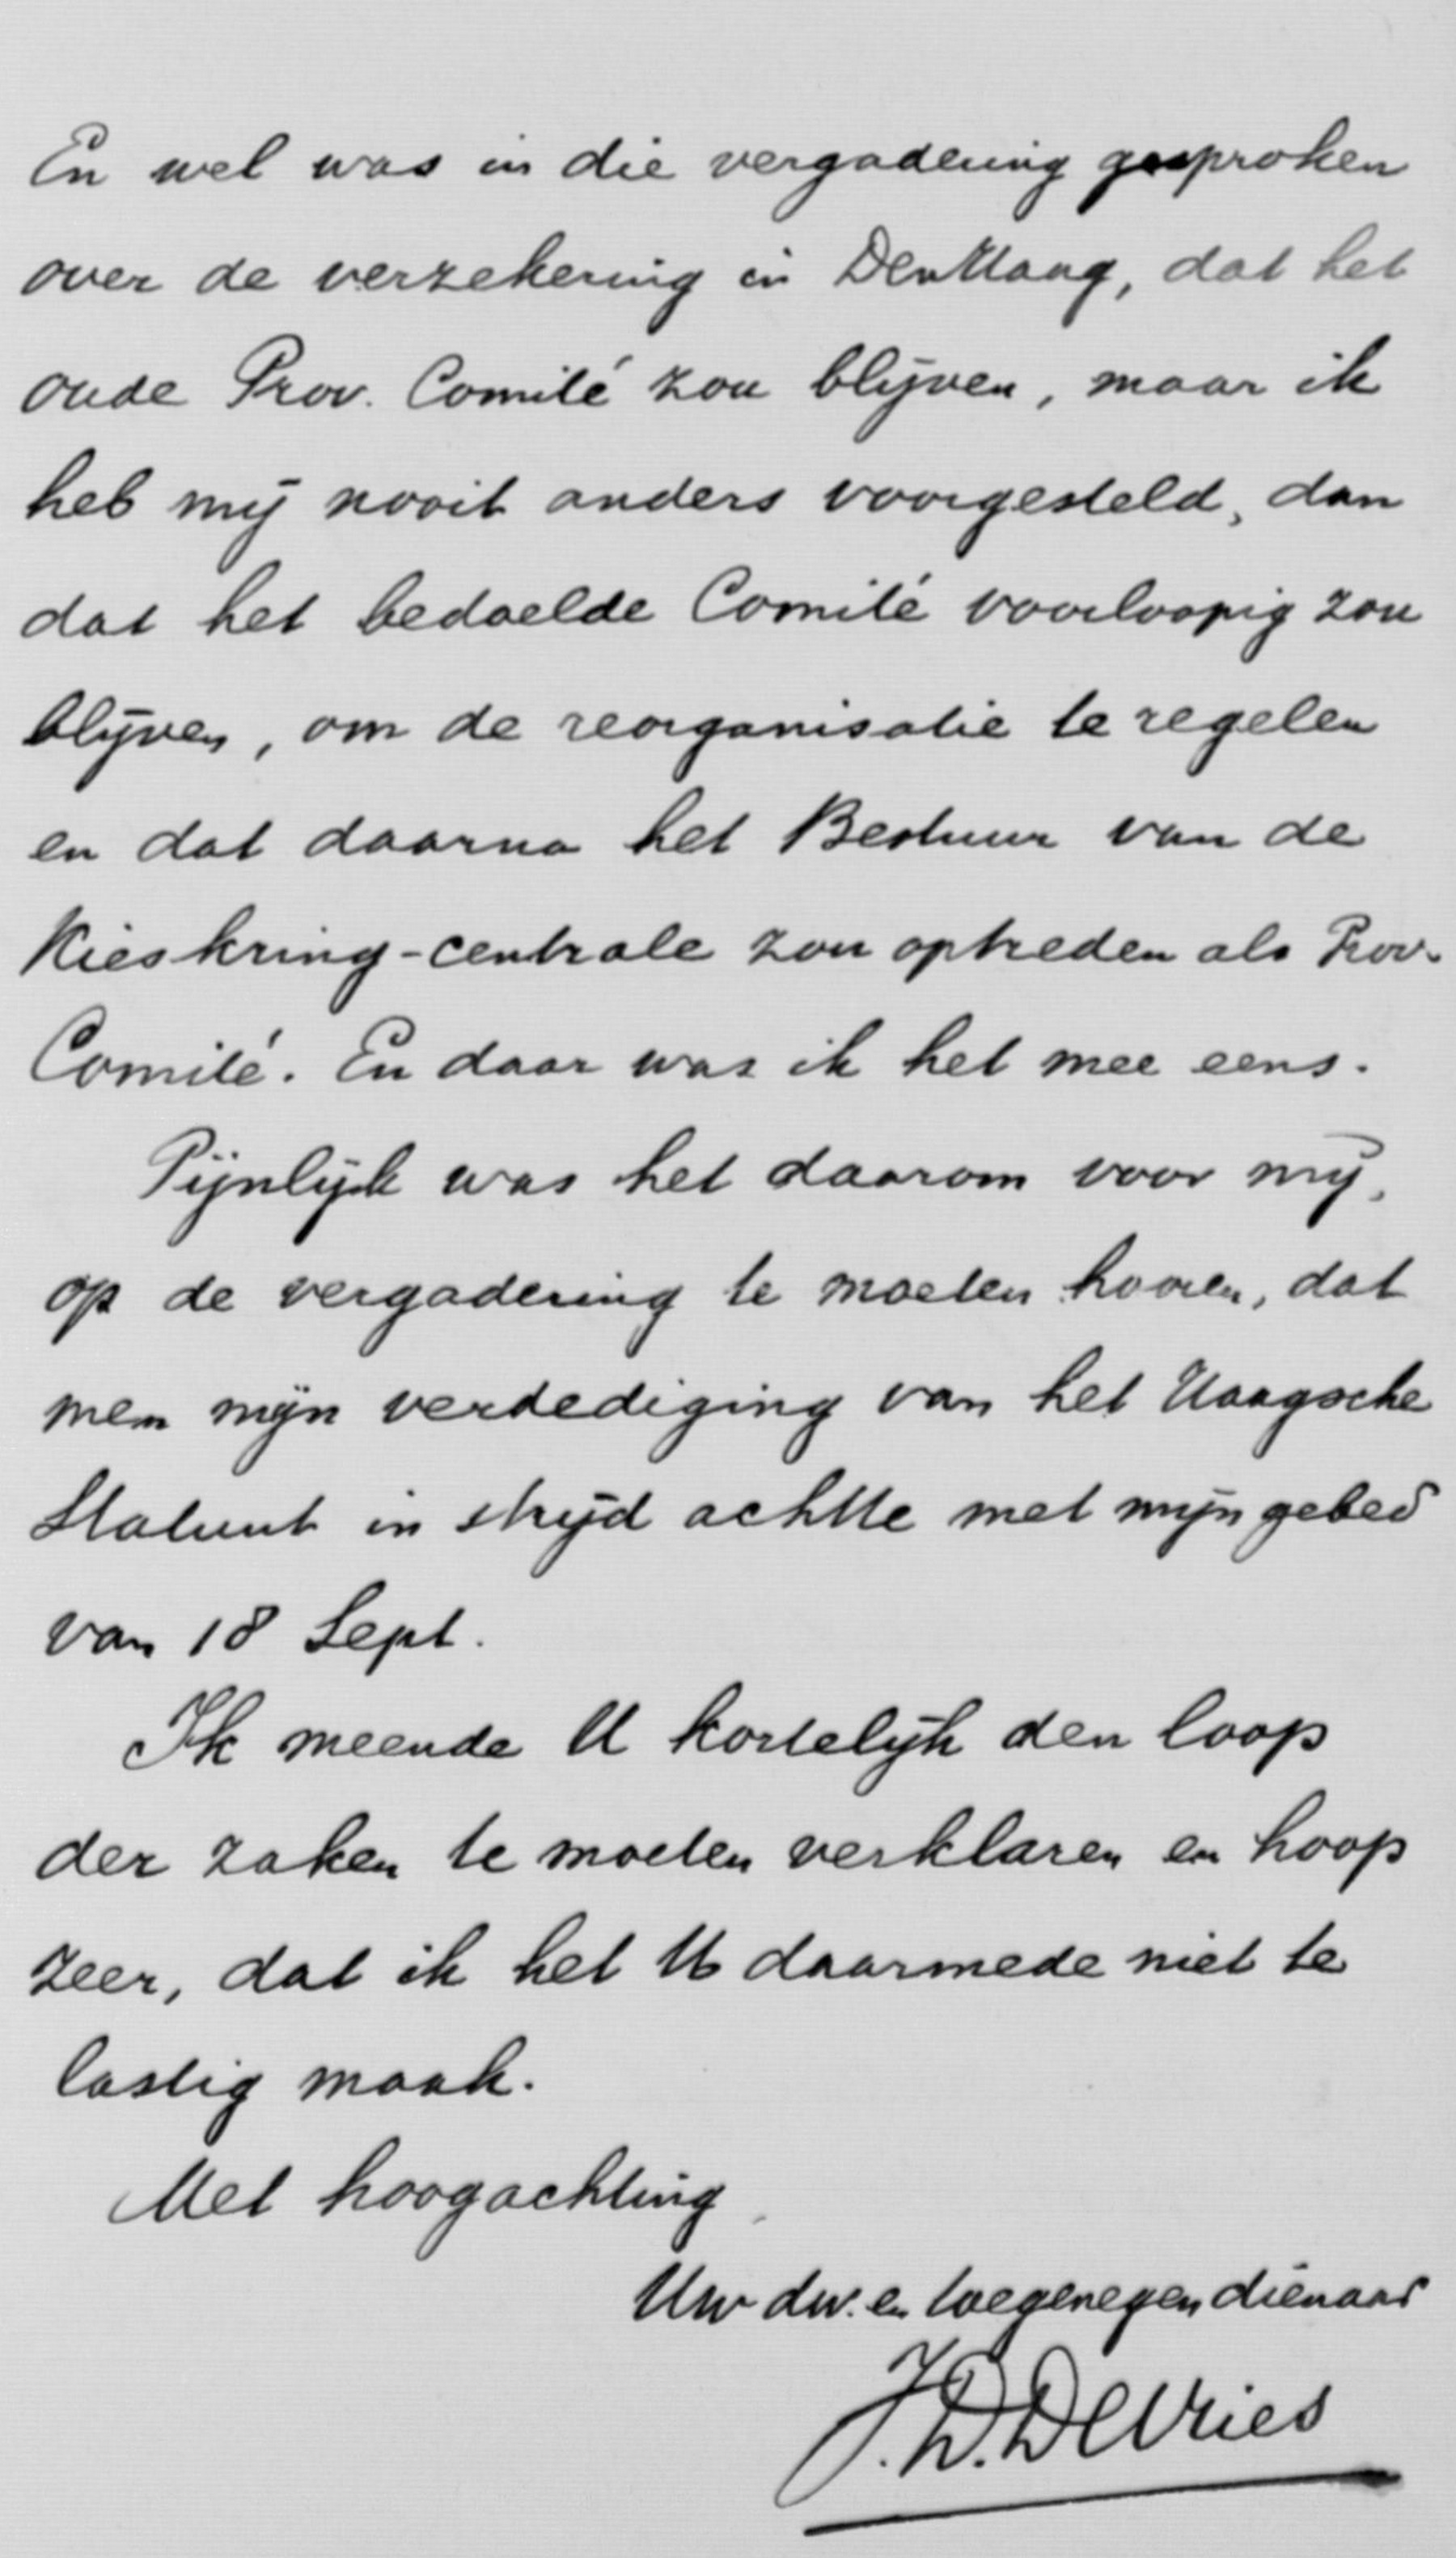 En wel was in die vergadering gesproken
over de verzekering in Den Haag, dat het
oude Prov. Comité zou blijven, maar ik
heb mij nooit anders voorgesteld, dan
dat het bedoelde Comité voorloopig zou
blijven, om de reorganisatie te regelen
en dat daarna het Bestuur van de
Kieskring-centrale zou optreden als Prov.
Comité. En daar was ik het mee eens.
Pijnlijk was het daarom voor mij,
op de vergadering te moeten hooren, dat
men mijn verdediging van het Haagsche
Statuut in strijd achtte met mijn gebed
van 18 Sept.
Ik meende U kortelijk den loop
der zaken te moeten verklaren en hoop
zeer, dat ik het U daarmede niet te
lastig maak.
Met hoogachting,
Uw dw. en toegenegen dienaar
J.D. De Vries